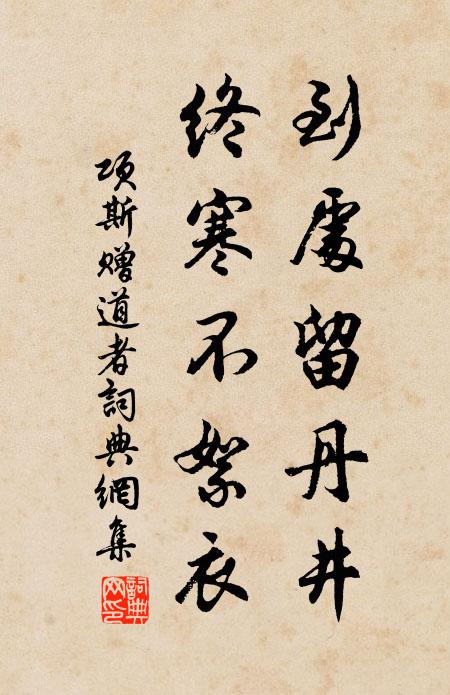 到處留丹井
終寒不絮衣
項斯贈道者詞典網集
詞典網印